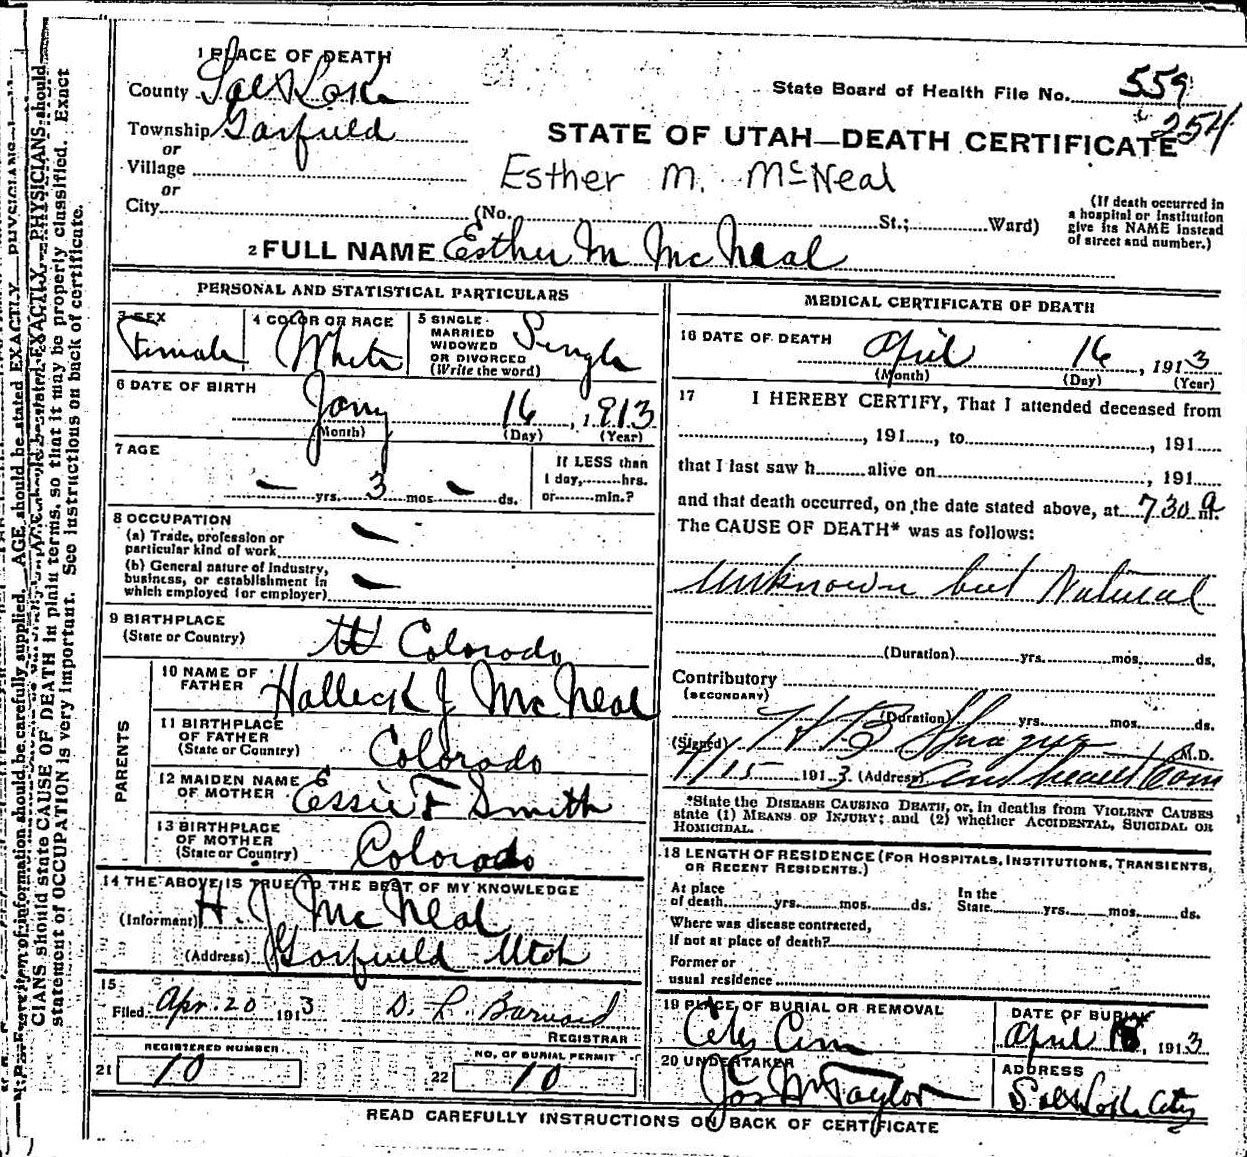 1 PLACE OF DEATH
County Salt Lake
State Board of Health File No. 559
254
Township Garfield
or
STATE OF UTAH—DEATH CERTIFICATE
Village
or
Esther M. McNeal
City (No. St.; Ward)
(If death occurred in a hospital or institution give its NAME instead of street and number.)
2 FULL NAME Esther M McNeal
PERSONAL AND STATISTICAL PARTICULARS
3 SEX Female
4 COLOR OR RACE White
5 SINGLE MARRIED WIDOWED OR DIVORCED (Write the word) Single
6 DATE OF BIRTH Jany 16, 1913
(Month) (Day) (Year)
7 AGE — yrs. 3 mos. — ds.
If LESS than 1 day, hrs. or min.?
8 OCCUPATION
(a) Trade, profession or particular kind of work —
(b) General nature of Industry, business, or establishment in which employed (or employer) —
9 BIRTHPLACE (State or Country) Colorado
PARENTS
10 NAME OF FATHER Halleck J McNeal
11 BIRTHPLACE OF FATHER (State or Country) Colorado
12 MAIDEN NAME OF MOTHER Essie F Smith
13 BIRTHPLACE OF MOTHER (State or Country) Colorado
14 THE ABOVE IS TRUE TO THE BEST OF MY KNOWLEDGE
(Informant) H. J McNeal
(Address) Garfield Utah
15
Filed Apr. 20 1913 D. L. Barnard
REGISTRAR
21 REGISTERED NUMBER 10
22 NO. OF BURIAL PERMIT 10
MEDICAL CERTIFICATE OF DEATH
16 DATE OF DEATH April 16, 1913
(Month) (Day) (Year)
17 I HEREBY CERTIFY, That I attended deceased from
, 191 , to , 191
that I last saw h alive on , 191
and that death occurred, on the date stated above, at 7 30 a m.
The CAUSE OF DEATH* was as follows:
Unknown but Natural
(Duration) yrs. mos. ds.
Contributory
(SECONDARY)
(Duration) yrs. mos. ds.
(Signed) H B Sprague M.D.
4/15 1913 (Address)
*State the DISEASE CAUSING DEATH, or, in deaths from VIOLENT CAUSES
state (1) MEANS OF INJURY; and (2) whether ACCIDENTAL, SUICIDAL OR
HOMICIDAL.
18 LENGTH OF RESIDENCE (FOR HOSPITALS, INSTITUTIONS, TRANSIENTS,
OR RECENT RESIDENTS.)
At place of death yrs. mos. ds.
In the State yrs. mos. ds.
Where was disease contracted,
If not at place of death?
Former or
usual residence
19 PLACE OF BURIAL OR REMOVAL City Cem
DATE OF BURIAL April 18, 1913
20 UNDERTAKER Jos W Taylor
ADDRESS Salt Lake City
READ CAREFULLY INSTRUCTIONS ON BACK OF CERTIFICATE
item of information should be carefully supplied. AGE should be stated EXACTLY. PHYSICIANS should
CIANS should state CAUSE OF DEATH in plain terms, so that it may be properly classified. Exact
statement of OCCUPATION is very important. See instructions on back of certificate.